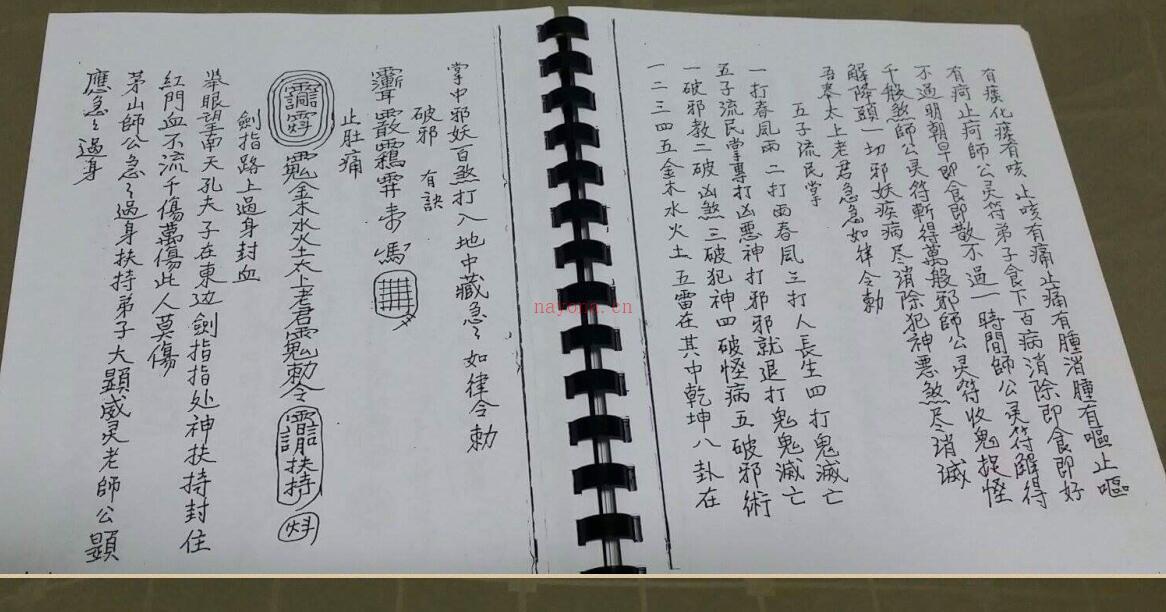 有痰化痰有咳止咳有痛止痛有腫消腫有嘔止嘔
有疴止疴師公灵符弟子食下百病消除即食即好
不過明朝早即食即散不過一時間師公灵符解得
千般煞師公灵符斬得萬般邪師公灵符收鬼捉怪
解降頭一切邪妖疾病尽消除犯神惡煞尽消滅
吾奉太上老君急急如律令勅
五子流民掌
一打春風雨二打雨春風三打人長生四打鬼滅亡
五子流民掌專打凶惡神打邪邪就退打鬼鬼滅亡
一破邪教二破凶煞三破犯神四破怪病五破邪術
一二三四五金木水火土五雷在其中乾坤八卦在
掌中邪妖百煞打入地中藏急々如律令勅
破邪 有訣
止肚痛
金木水火土太上老君
勅令
扶持
劍指路上過身封血
举眼望南天孔夫子在東边劍指指处神扶持封住
紅門血不流千傷萬傷此人莫傷
茅山師公急々過身扶持弟子大顯威灵老師公顯
應急々過身
nayona.cn